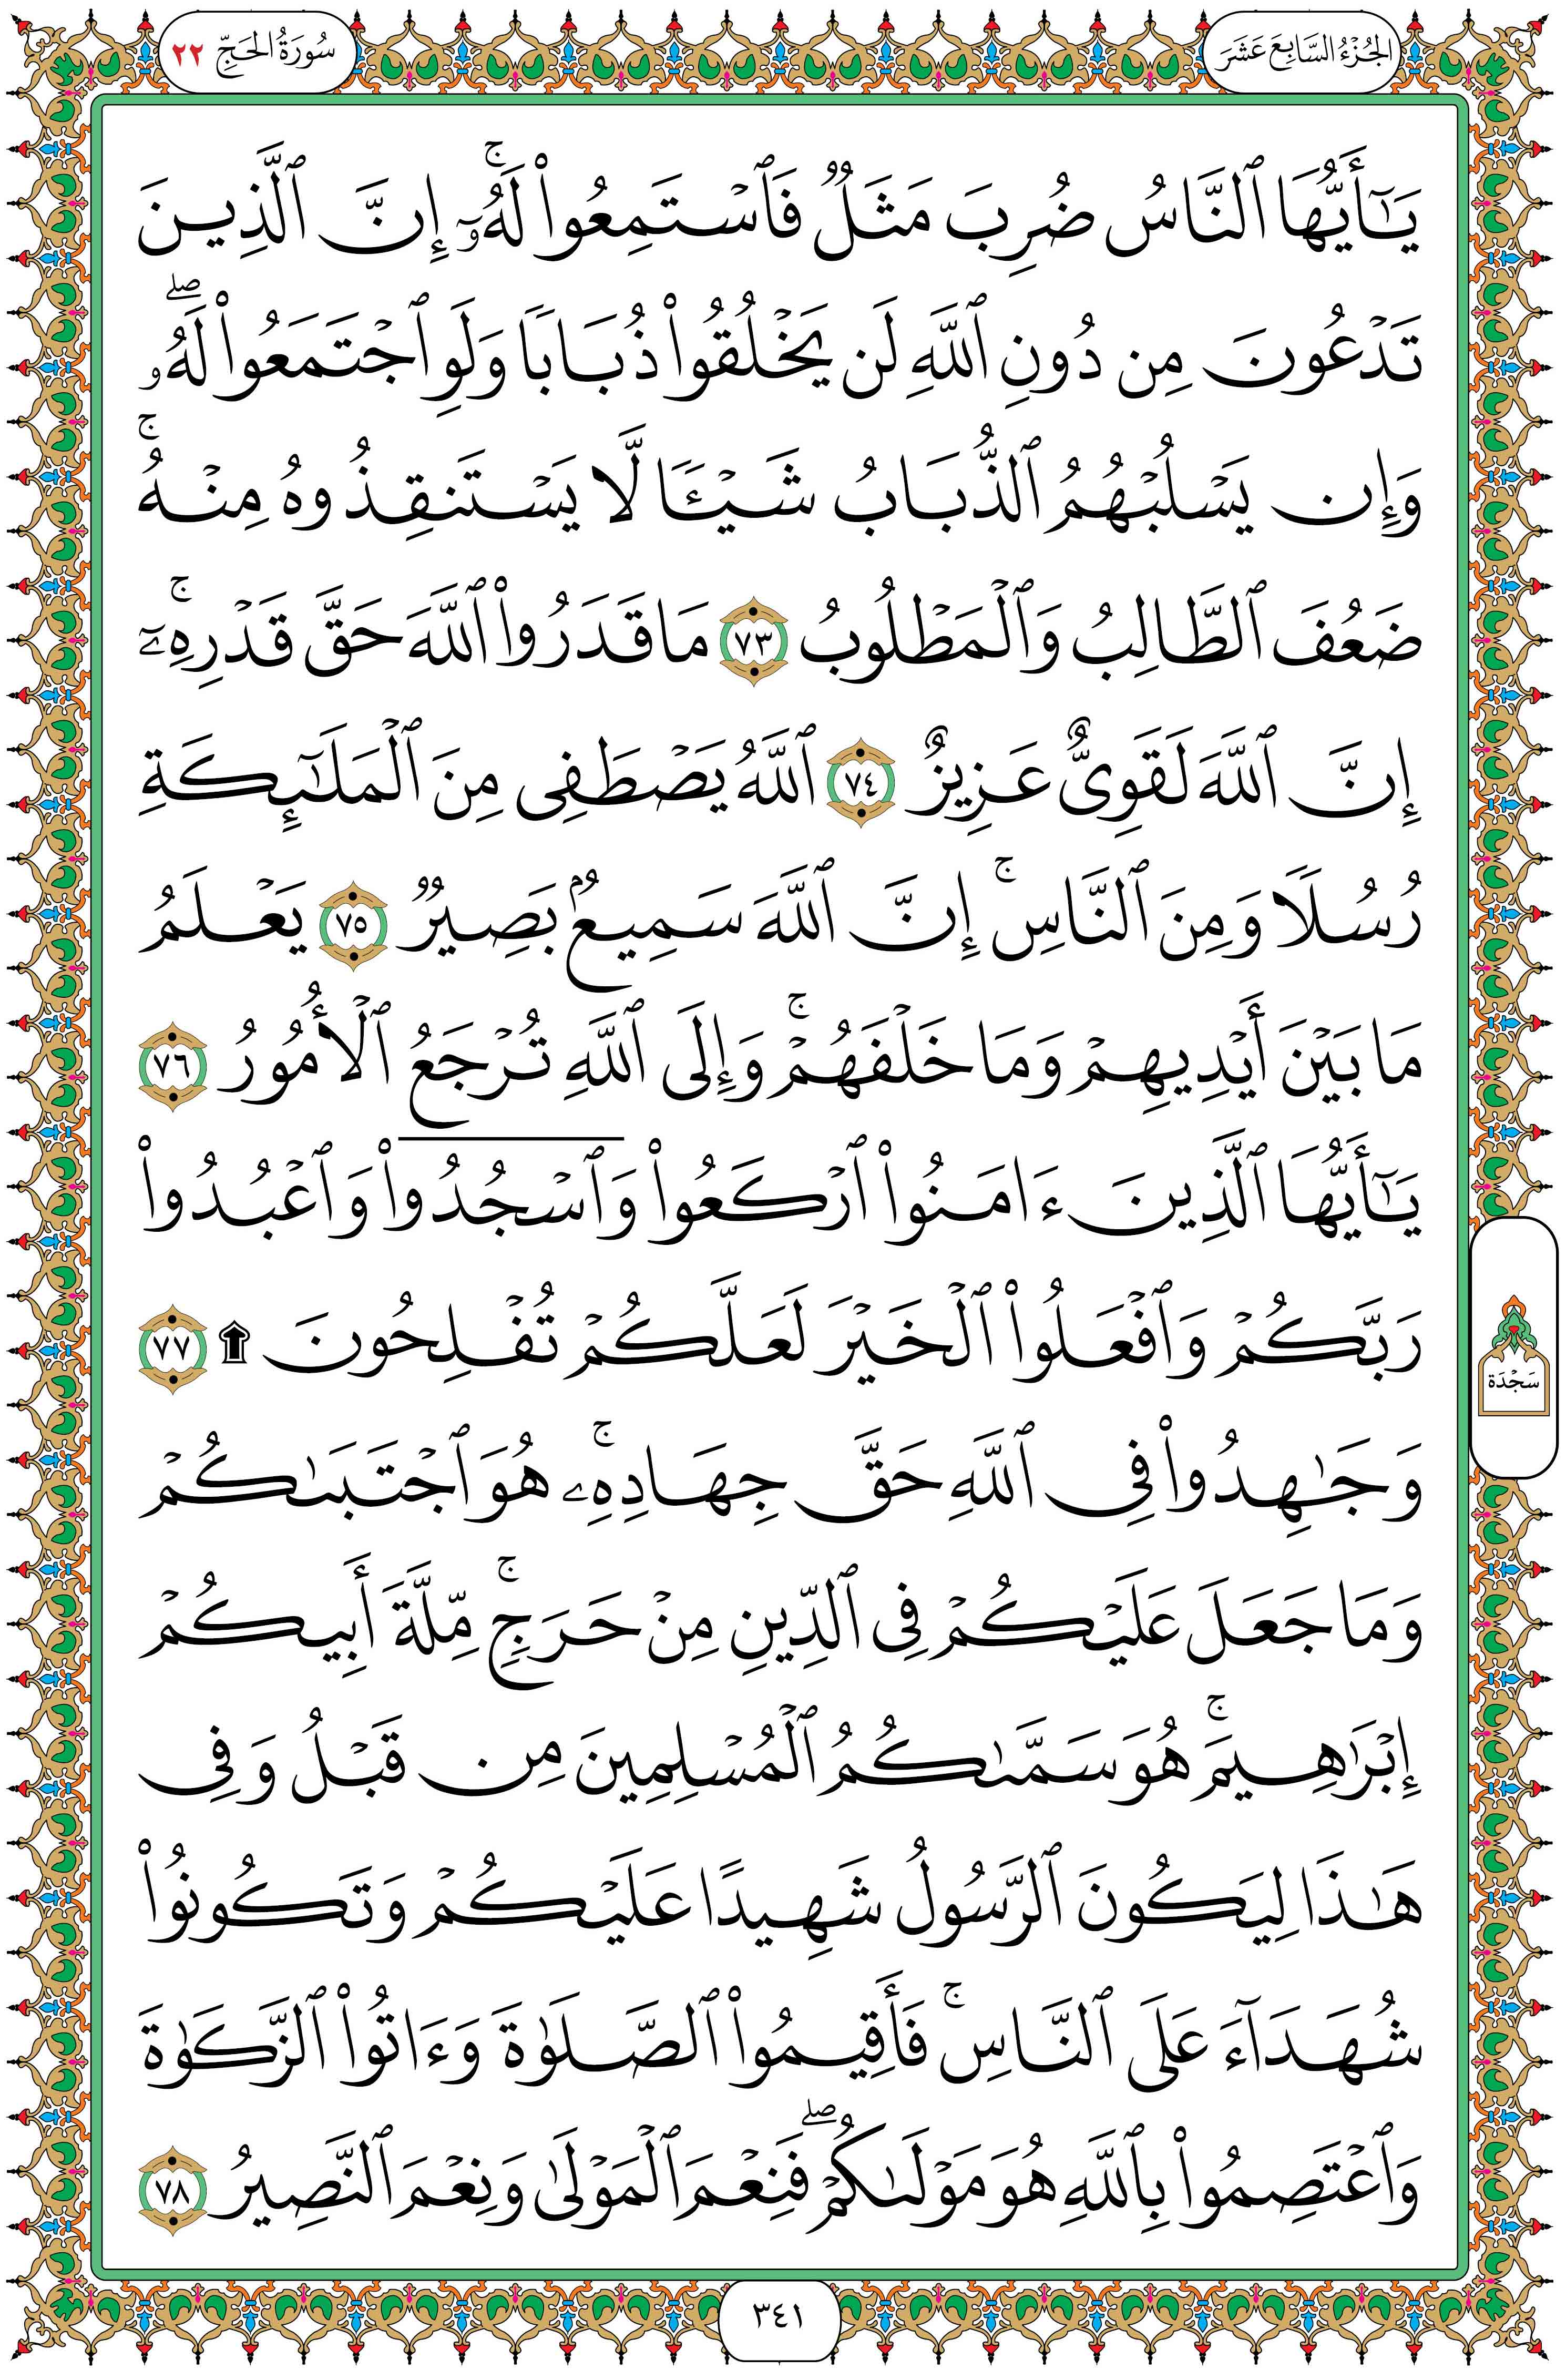 الجُزْءُ السَّابِعَ عَشَرَ
سُورَةُ الحَجِّ ٢٢
يَـٰٓأَيُّهَا ٱلنَّاسُ ضُرِبَ مَثَلٌ فَٱسْتَمِعُوا۟ لَهُۥٓ ۚ إِنَّ ٱلَّذِينَ
تَدْعُونَ مِن دُونِ ٱللَّهِ لَن يَخْلُقُوا۟ ذُبَابًا وَلَوِ ٱجْتَمَعُوا۟ لَهُۥ ۖ
وَإِن يَسْلُبْهُمُ ٱلذُّبَابُ شَيْـًٔا لَّا يَسْتَنقِذُوهُ مِنْهُ ۚ
ضَعُفَ ٱلطَّالِبُ وَٱلْمَطْلُوبُ ٧٣ مَا قَدَرُوا۟ ٱللَّهَ حَقَّ قَدْرِهِۦٓ ۚ
إِنَّ ٱللَّهَ لَقَوِىٌّ عَزِيزٌ ٧٤ ٱللَّهُ يَصْطَفِى مِنَ ٱلْمَلَـٰٓئِكَةِ
رُسُلًا وَمِنَ ٱلنَّاسِ ۚ إِنَّ ٱللَّهَ سَمِيعٌۢ بَصِيرٌ ٧٥ يَعْلَمُ
مَا بَيْنَ أَيْدِيهِمْ وَمَا خَلْفَهُمْ ۚ وَإِلَى ٱللَّهِ تُرْجَعُ ٱلْأُمُورُ ٧٦
يَـٰٓأَيُّهَا ٱلَّذِينَ ءَامَنُوا۟ ٱرْكَعُوا۟ وَٱسْجُدُوا۟ وَٱعْبُدُوا۟
رَبَّكُمْ وَٱفْعَلُوا۟ ٱلْخَيْرَ لَعَلَّكُمْ تُفْلِحُونَ ۩ ٧٧
سَجْدَة
وَجَـٰهِدُوا۟ فِى ٱللَّهِ حَقَّ جِهَادِهِۦ ۚ هُوَ ٱجْتَبَىٰكُمْ
وَمَا جَعَلَ عَلَيْكُمْ فِى ٱلدِّينِ مِنْ حَرَجٍ ۚ مِّلَّةَ أَبِيكُمْ
إِبْرَٰهِيمَ ۚ هُوَ سَمَّىٰكُمُ ٱلْمُسْلِمِينَ مِن قَبْلُ وَفِى
هَـٰذَا لِيَكُونَ ٱلرَّسُولُ شَهِيدًا عَلَيْكُمْ وَتَكُونُوا۟
شُهَدَآءَ عَلَى ٱلنَّاسِ ۚ فَأَقِيمُوا۟ ٱلصَّلَوٰةَ وَءَاتُوا۟ ٱلزَّكَوٰةَ
وَٱعْتَصِمُوا۟ بِٱللَّهِ هُوَ مَوْلَىٰكُمْ ۖ فَنِعْمَ ٱلْمَوْلَىٰ وَنِعْمَ ٱلنَّصِيرُ ٧٨
٣٤١